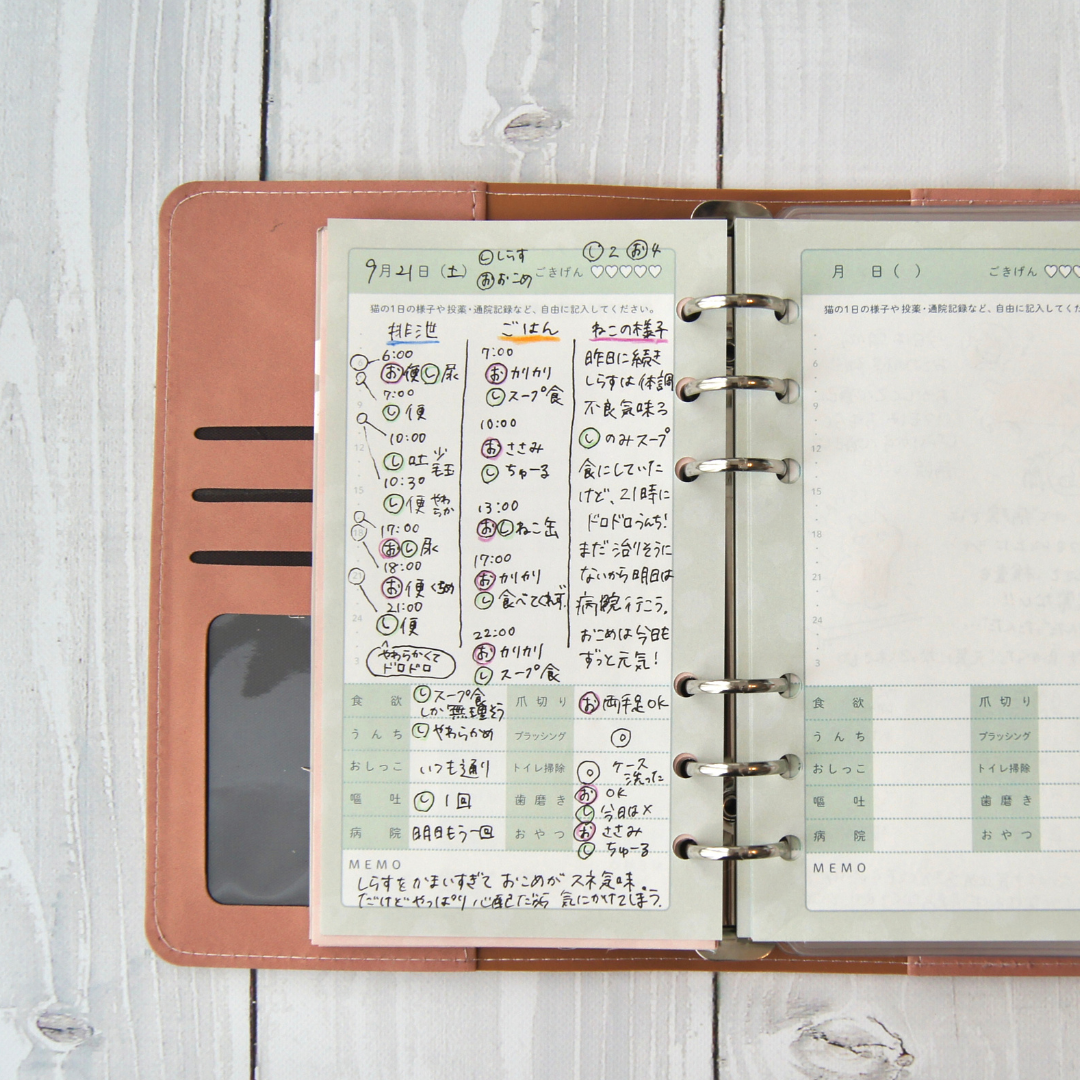 9月21日(土)
し しらす
お おこめ
し2 お4
ごきげん ♡♡♡♡♡
猫の1日の様子や投薬・通院記録など、自由に記入してください。
排泄
6:00
お便 し尿
7:00
し便
10:00
し吐 少 毛玉
10:30
し便 やわらか
17:00
おし尿
18:00
お便 くちめ
21:00
し便
やわらかくて
ドロドロ
6
9
12
15
18
21
24
3
ごはん
7:00
お カリカリ
し スープ食
10:00
お ささみ
し ちゅーる
13:00
おし ねこ缶
17:00
お カリカリ
し 食べてくれず
22:00
お カリカリ
し スープ食
ねこの様子
昨日に続き
しらすは体調
不良気味ろ
し のみスープ
食にしていた
けど、21時に
ドロドロうんち!
まだ治りそうに
ないから明日は
病院行こう。
おこめは今日も
ずっと元気!
食欲 し スープ食
しか無理そう
爪切り お 両手足OK
うんち し やわらかめ
ブラッシング ◎
おしっこ いつも通り
トイレ掃除 ◎ ケース
洗った
嘔吐 し 1回
歯磨き お OK
し 今日は×
病院 明日もう一回
おやつ お ささみ
し ちゅーる
MEMO
しらすをかまいすぎて おこめが スネ気味。
だけどやっぱり 心配だから 気にかけてしまう。
月 日( )
ごきげん ♡♡
猫の1日の様子や投薬・通院記録など、自由に記入してくだ
6
9
12
15
18
21
24
3
食欲 爪切り
うんち ブラッシング
おしっこ トイレ掃除
嘔吐 歯磨き
病院 おやつ
MEMO